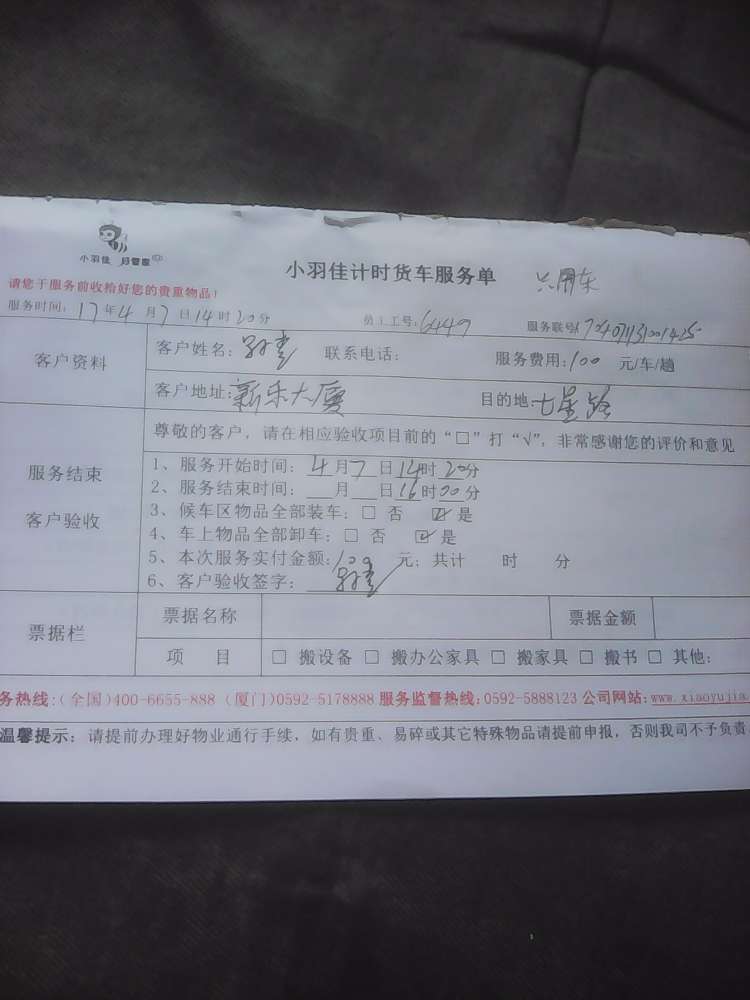 小羽佳 好管家
小羽佳计时货车服务单 只用车
请您于服务前收拾好您的贵重物品！
服务时间：17年4月7日14时20分 员工工号：6449 服务联号：
客户资料
客户姓名： 联系电话： 服务费用：100 元/车/趟
客户地址：新乐大厦 目的地：七星路
服务结束
客户验收
尊敬的客户，请在相应验收项目前的“□”打“√”，非常感谢您的评价和意见
1、服务开始时间：4月7日14时20分
2、服务结束时间：__月__日16时00分
3、候车区物品全部装车：□ 否 ☑ 是
4、车上物品全部卸车：□ 否 ☑ 是
5、本次服务实付金额：100元；共计 时 分
6、客户验收签字：
票据栏
票据名称 票据金额
项 目 □ 搬设备 □ 搬办公家具 □ 搬家具 □ 搬书 □ 其他：
务热线：(全国)400-6655-888 (厦门)0592-5178888 服务监督热线：0592-5888123 公司网站：www.xiaoyujia
温馨提示：请提前办理好物业通行手续，如有贵重、易碎或其它特殊物品请提前申报，否则我司不予负责